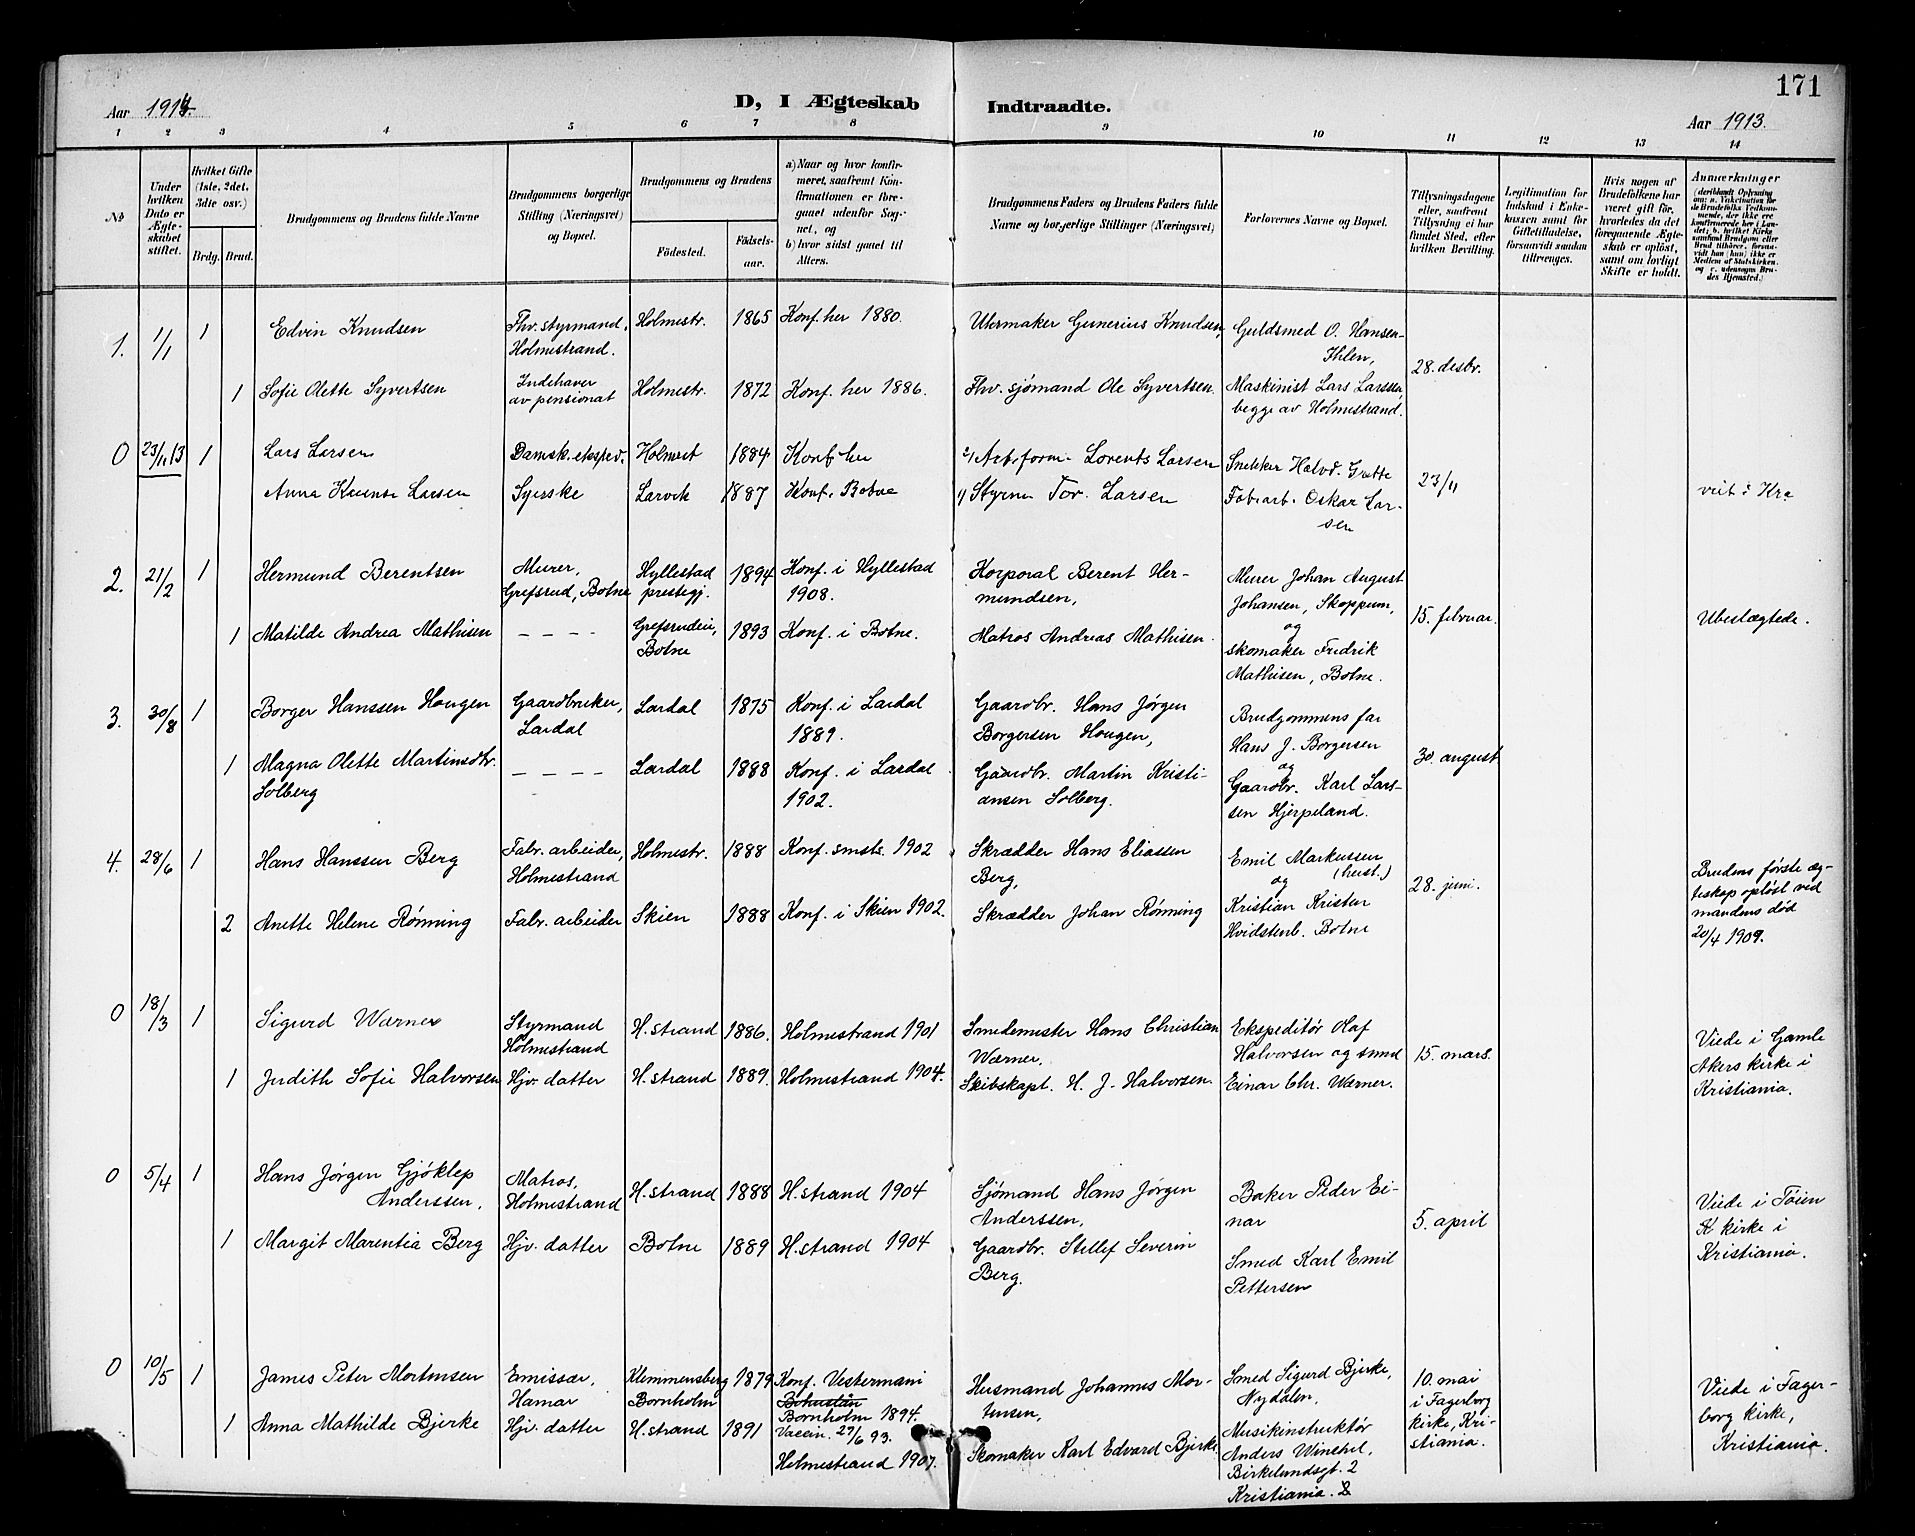 171
Aar 1914.
D, I Ægteskab Indtraadte.
Aar 1913.
1 2 3 4 5 6 7 8 9 10 11 12 13 14
No
Under hvilken Dato er Ægteskabet stiftet.
Hvilket Gifte (1ste, 2det, 3die osv.)
Brdg. Brud.
Brudgommens og Brudens fulde Navne
Brudgommens borgerlige Stilling (Næringsvei) og Bopæl.
Brudgommens og Brudens
Födested.
Födselsaar.
a) Naar og hvor konfirmeret, saafremt Konfirmationen er foregaaet udenfor Sognet, og
b) hvor sidst gaaet til Alters.
Brudgommens Faders og Brudens Faders fulde Navne og borgerlige Stillinger (Næringsvei)
Forlovernes Navne og Bopæl.
Tillysningsdagene eller, saafremt Tillysning ei har fundet Sted, efter hvilken Bevilling.
Legitimation for Indskud i Enkekassen samt for Giftetilladelse, forsaavidt saadan tiltrænges.
Hvis nogen af Brudefolkene har været gift för, hvorledes da det foregaaende Ægteskab er oplöst, samt om lovligt Skifte er holdt.
Anmærkninger
(deriblandt Oplysning om: a. Vakcination for de Brudefolks Vedkommende, der ikke ere konfirmerede her i Landet; b. hvilket Kirkesamfund Brudgom eller Brud tilhörer, forsaavidt han (hun) ikke er Medlem af Statskirken, og c. udensogns Brudes Hjemsted.)
1. 1/1 1 Edvin Knudsen
Fhv. styrmand, Holmestrand.
Holmestr. 1865 Konf. her 1880.
Urmaker Gunerius Knudsen,
Guldsmed O. Hansen-Ihlen,
28. desbr.
1 Sofie Olette Syvertsen
Indehaver av pensionat
Holmestr. 1872 Konf. her 1886.
Fhv. sjömand Ole Syvertsen.
Maskinist Lars Larssen, begge av Holmestrand.
0 23/11 13 1 Lars Larsen
Dampsk. eksped.
Holmest 1884 Konf. her
Arb.form. Lorents Larsen
Snekker Halvd. Grette
23/11
Anna Larsen
Syerske
Larvik 1887 Konf. Botne
Styrm Tor. Larsen
Fabrarb. Oskar Larsen
viet i Kra
2. 21/2 1 Hermund Berentsen
Murer, Grefsrud, Botne
Hyllestad prestegj. 1894 Konf. i Hyllestad 1908.
Korporal Berent Hermundsen,
Murer Johan August Johansen, Skoppum,
og
15. februar.
1 Matilde Andrea Mathisen
– – – –
Grefsrudeie, Botne 1893 Konf. i Botne.
Matros Andreas Mathisen.
skomaker Fredrik Mathisen, Botne.
Ubeslægtede.
3. 30/8 1 Borger Hanssen Haugen
Gaardbruker, Lardal
Lardal 1875 Konf. i Lardal 1889.
Gaardbr. Hans Jørgen Borgersen Hougen,
Brudgommens far Hans J. Borgersen
og
30. august
1 Magna Olette Martinsdtr. Solberg
– – – –
Lardal 1888 Konf. i Lardal 1902.
Gaardbr. Martin Kristiansen Solberg.
Gaardbr. Karl Larssen Hjerpeland.
4. 28/6 1 Hans Hanssen Berg
Fabr. arbeider, Holmestrand
Holmestr. 1888 Konf. smsts. 1902
Skrædder Hans Eliassen Berg,
Emil Markussen (herst.)
og
28. juni.
2 Anette Helene Rønning
Fabr. arbeider
Skien 1888 Konf. i Skien 1902.
Skrædder Johan Rønning
Kristian Kristen Hvidstenb. Botne
Brudens første ægteskap opløst ved mandens død 20/4 1909.
0 18/3 1 Sigurd Wærner
Styrmand Holmestrand
H.strand 1886. Holmestrand 1901
Smedemester Hans Christian Wærner.
Ekspeditør Olaf Halvorsen og smed
15. mars.
1 Judith Sofie Halvorsen
Hjv. datter
H.strand 1889. Holmestrand 1904.
Skibskapt. H. J. Halvorsen.
Einar Chr. Wærner.
Viede i Gamle Akers kirke i Kristiania.
0 5/4 1 Hans Jørgen Gjøklep Anderssen,
Matros, Holmestrand
H.strand 1888 H.strand 1904
Sjømand Hans Jørgen Anderssen,
Baker Peder Einar
5. april
1 Margit Marentia Berg
Hjv. datter
Botne 1889 H.strand 1904
Gaardbr. Stellef Severin Berg.
Smed Karl Emil Pettersen
Viede i Tøien K kirke i Kristiania.
0 10/5 1 James Peter Mortensen
Emissær, Hamar
Klemmensberg Bornholm 1879 Konf. Vestermari
Bornholm 1894.
Vaccin. 27/6 93.
Husmand Johannes Mortensen,
Smed Sigurd Bjerke, Nydalen.
10. mai i Fagerborg kirke, Kristiania.
1 Anna Mathilde Bjerke
Hjv. datter
H.strand 1891
Holmestrand 1907.
Skomaker Karl Edvard Bjerke
Musikinstruktør Anders Winchel, Birkelundsgt. 2 Kristiania.
Viede i Fagerborg kirke, Kristiania.